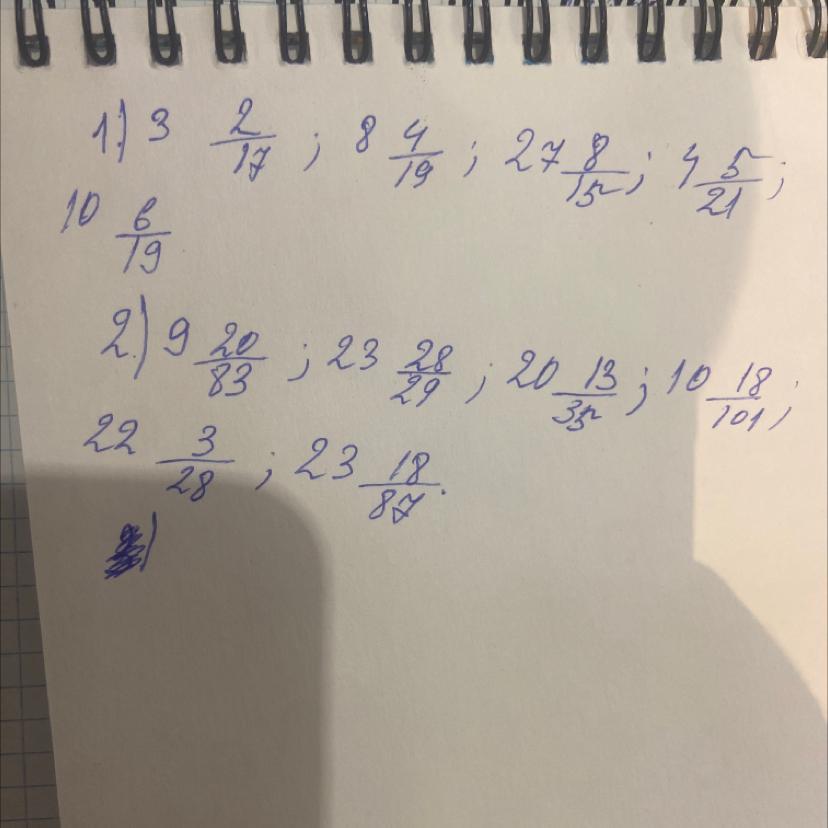 1) 3 2/17 ; 8 4/19 ; 27 8/15 ; 4 5/21 ;
10 6/19
2) 9 20/83 ; 23 28/29 ; 20 13/35 ; 10 18/101 ;
22 3/28 ; 23 18/87.
)